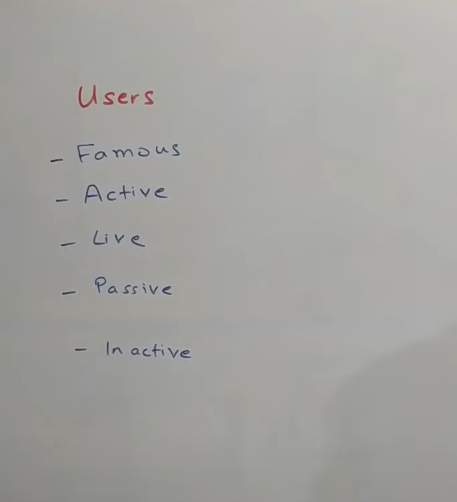 Users
- Famous
- Active
- Live
- Passive
- Inactive